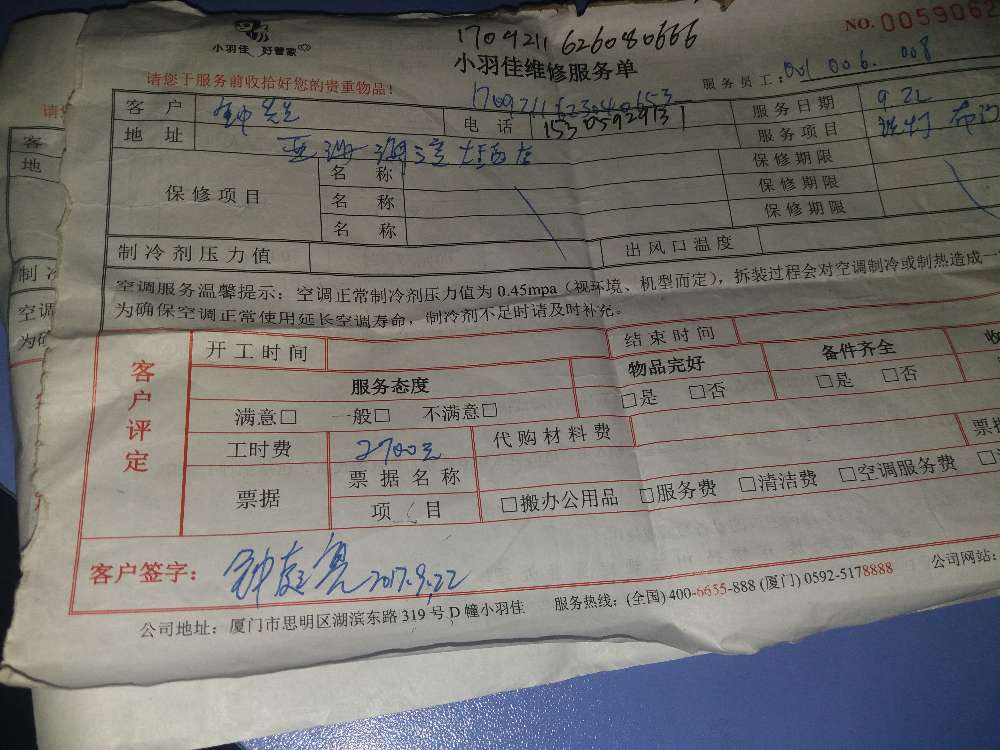 小羽佳 好管家
1709211626080666
NO.0059062
小羽佳维修服务单
请您于服务前收拾好您的贵重物品!
服务员工:001 006. 008
1709211523040653
客户 钟先生 电话 15305929131 服务日期 9 22
地址 亚洲海湾 服务项目 洗灯
保修项目 名称 保修期限
名称 保修期限
名称 保修期限
制冷剂压力值 出风口温度
空调服务温馨提示:空调正常制冷剂压力值为0.45mpa(视环境、机型而定),拆装过程会对空调制冷或制热造成一
为确保空调正常使用延长空调寿命,制冷剂不足时请及时补充。
客户评定
开工时间 结束时间
服务态度 物品完好 备件齐全 收
满意□ 一般□ 不满意□ □是 □否 □是 □否
工时费 2700元 代购材料费 票据
票据 票据名称
项目 □搬办公用品 □服务费 □清洁费 □空调服务费 □
客户签字: 2017.9.22
公司地址:厦门市思明区湖滨东路319号D幢小羽佳 服务热线:(全国)400-6655-888(厦门)0592-5178888 公司网站:
请
客
地
制冷
空调
为确